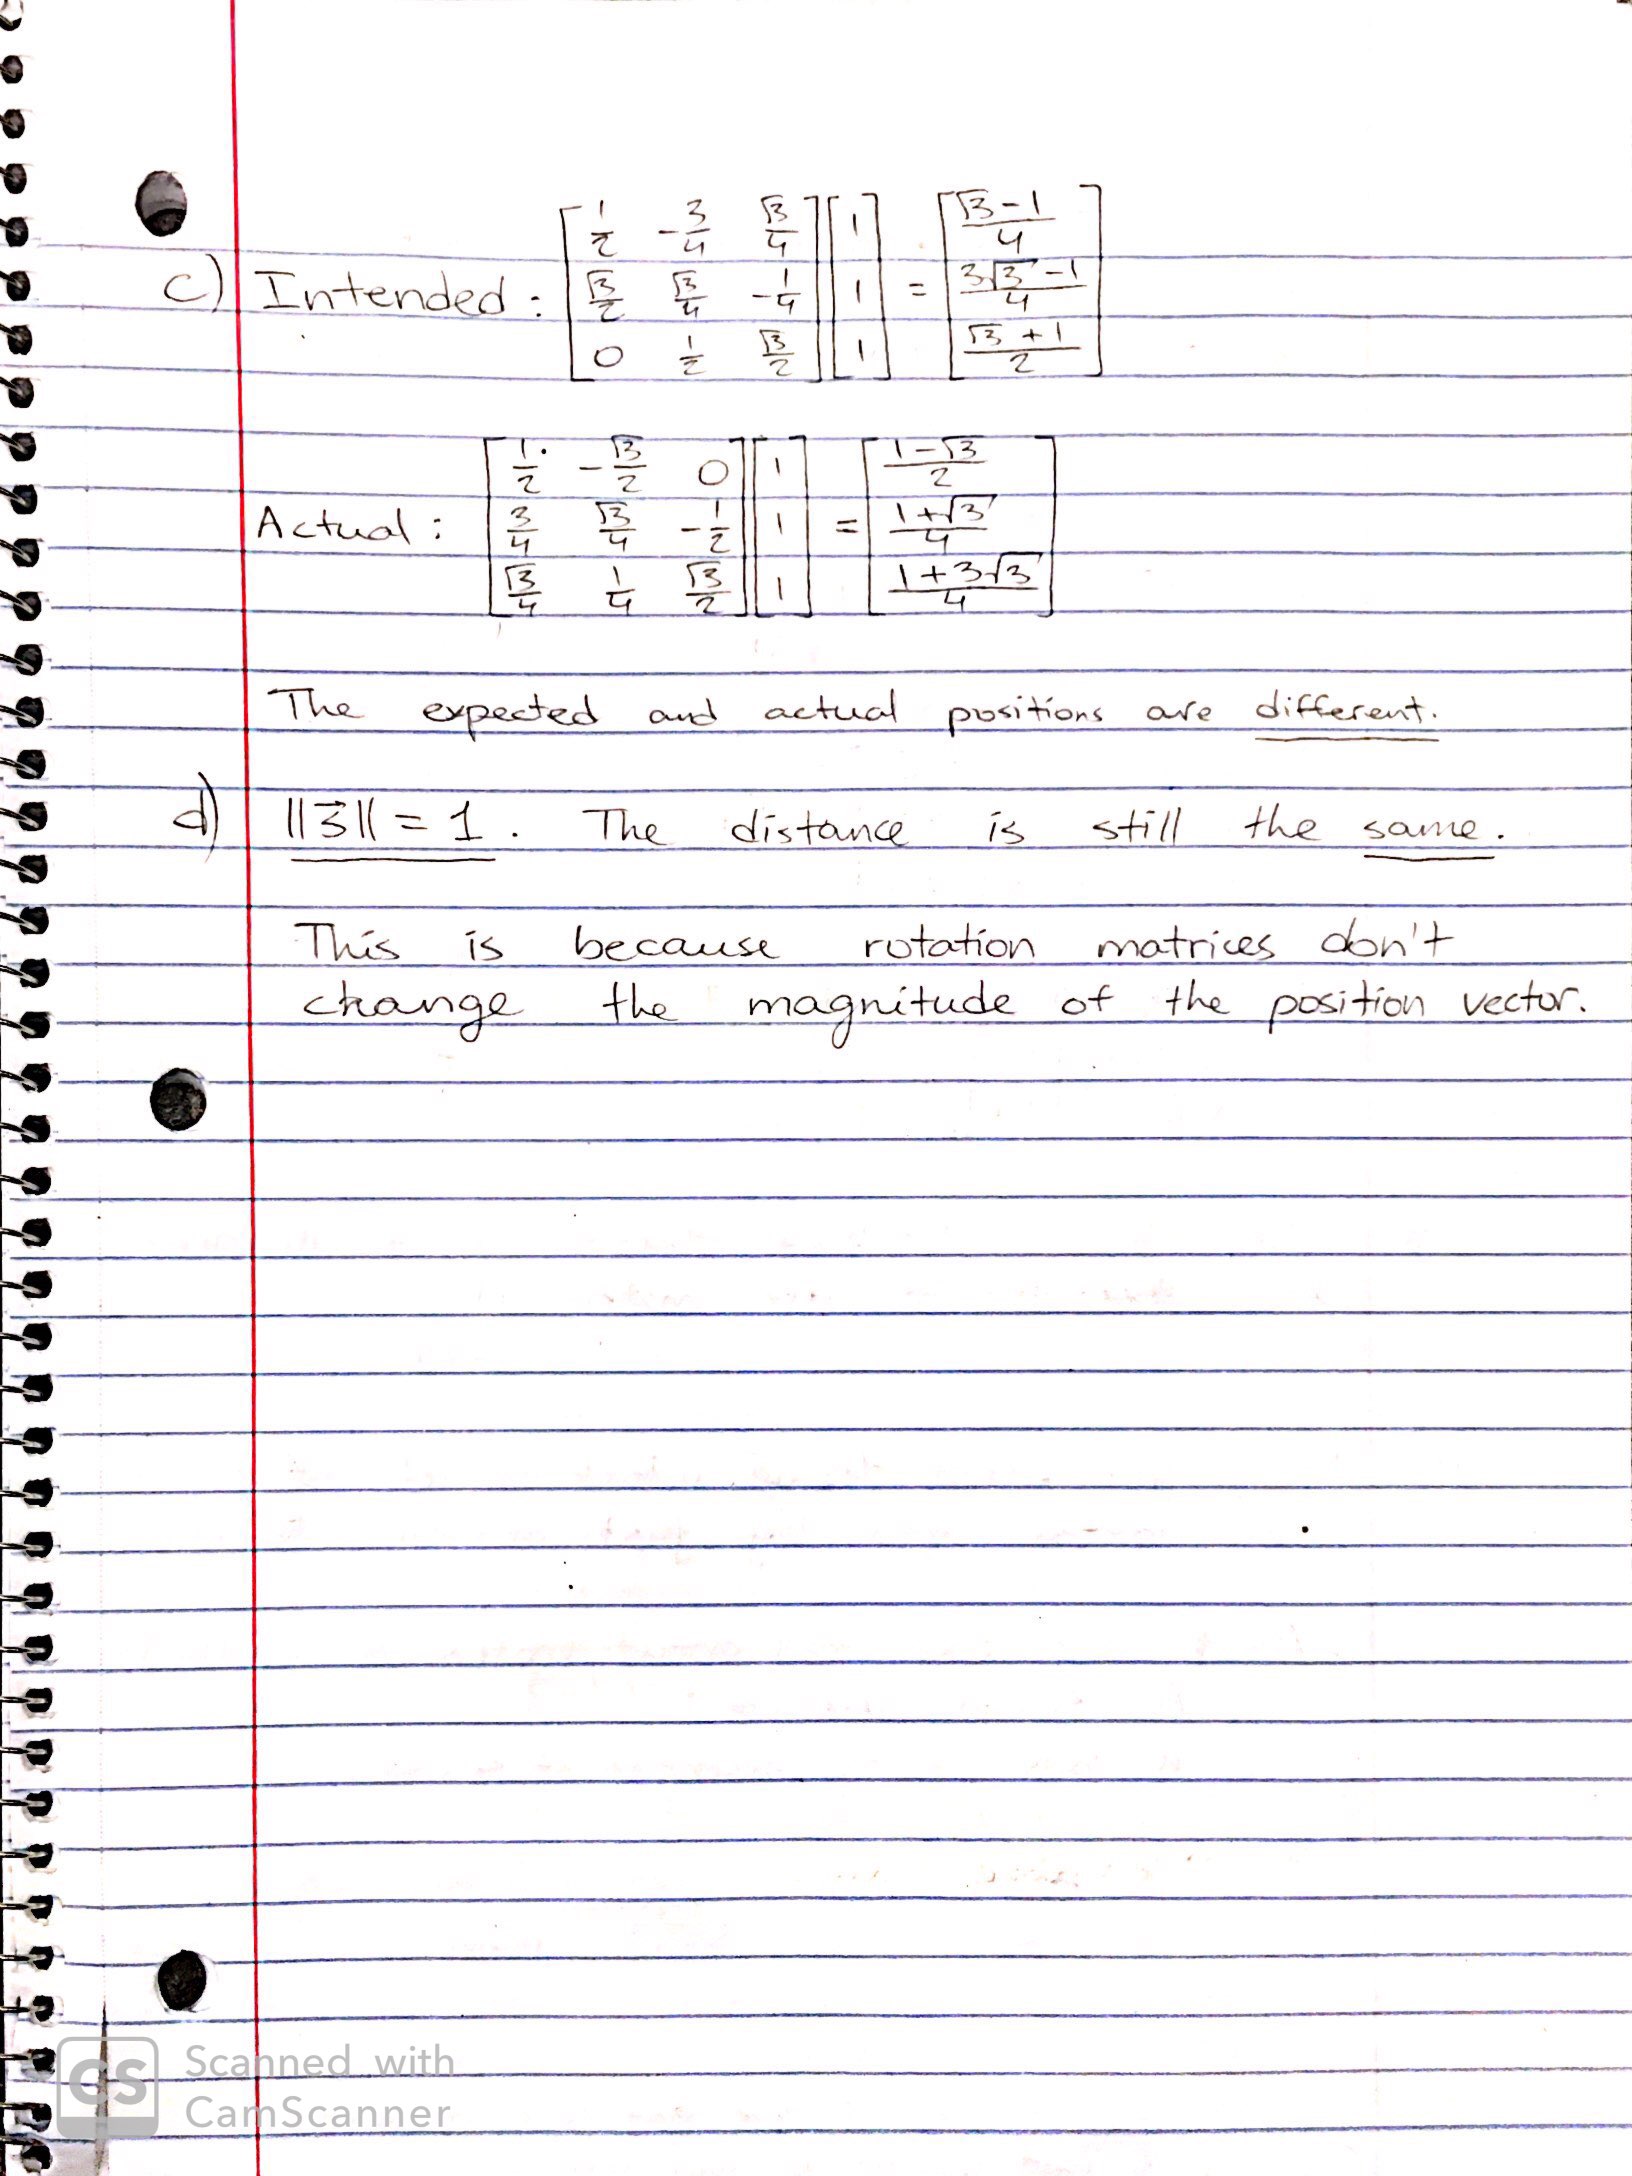 c) Intended : [ 1/2 -3/4 √3/4 ; √3/2 √3/4 -1/4 ; 0 1/2 √3/2 ] [ 1 ; 1 ; 1 ] = [ (√3-1)/4 ; (3√3-1)/4 ; (√3+1)/2 ]
Actual : [ 1/2 -√3/2 0 ; 3/4 √3/4 -1/2 ; √3/4 1/4 √3/2 ] [ 1 ; 1 ; 1 ] = [ (1-√3)/2 ; (1+√3)/4 ; (1+3√3)/4 ]
The expected and actual positions are different.
d) ||3⃗|| = 1 . The distance is still the same.
This is because rotation matrices don't
change the magnitude of the position vector.
CS Scanned with
CamScanner